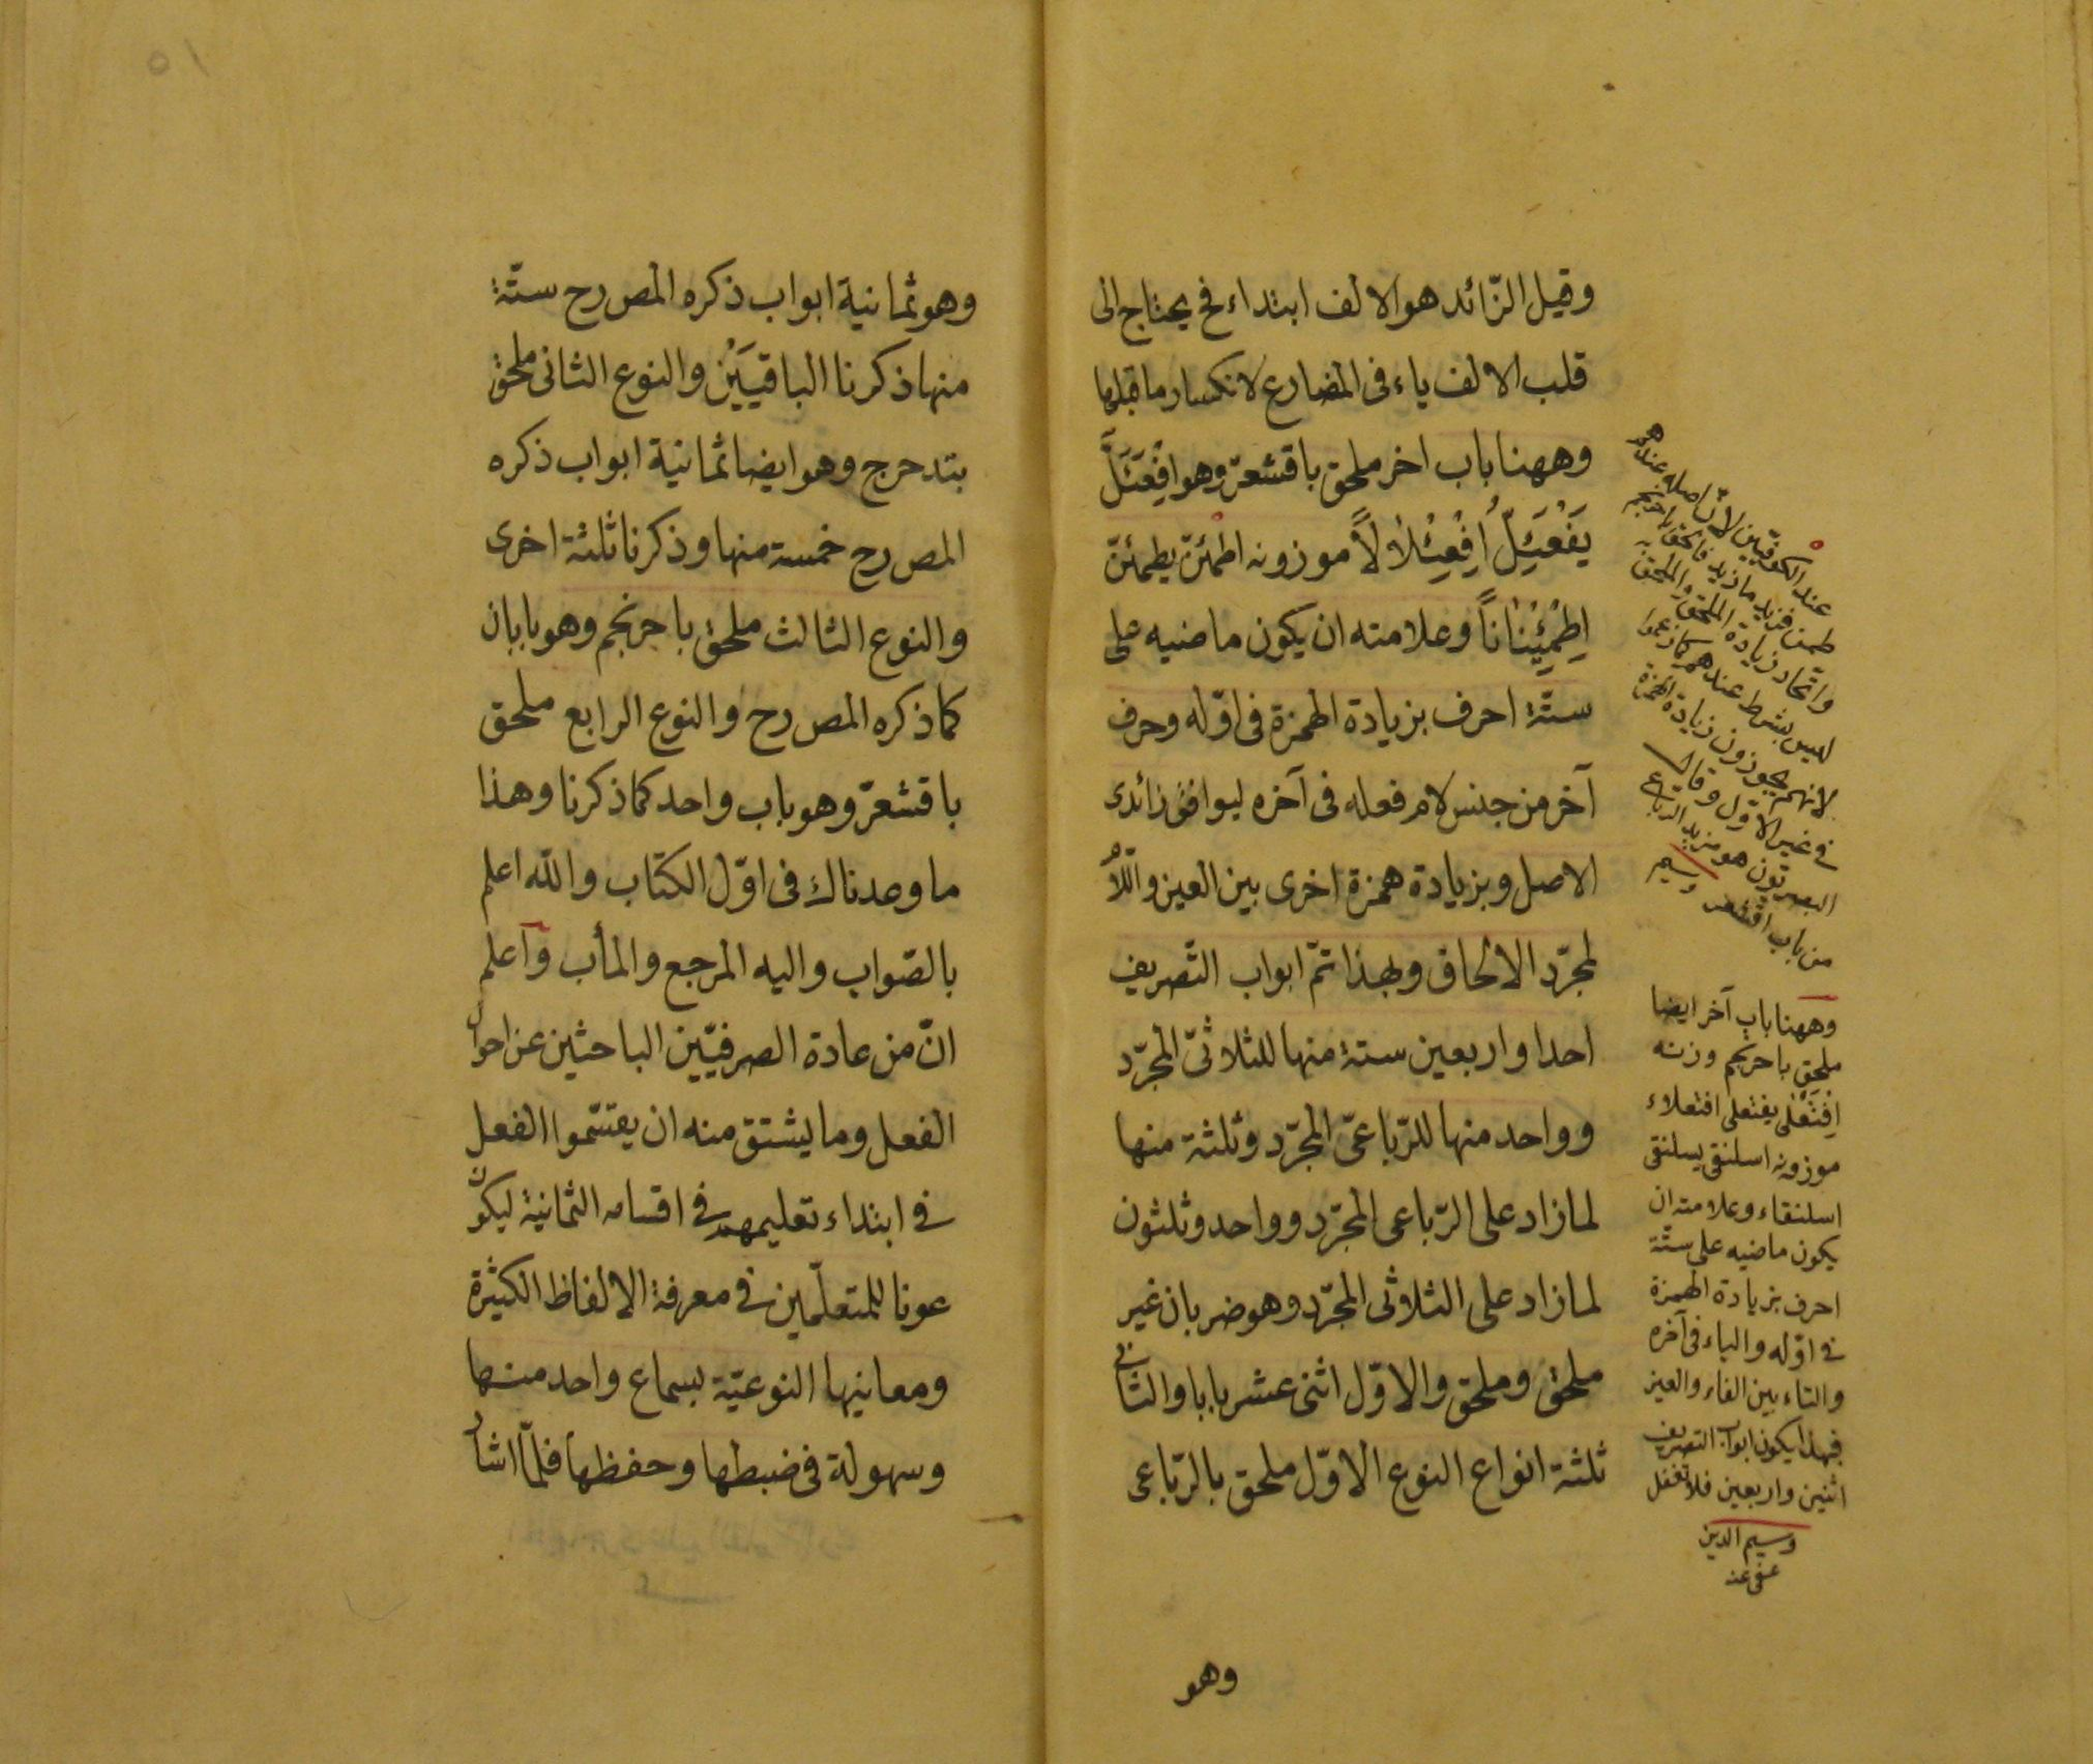 وقيل الزّائد هو الالف ابتداء فح يحتاج الى
قلب الالف ياء فى المضارع لانكسار ما قبلها
وههنا باب اخر ملحق باقشعرّ وهو اِفْعَئَلَّ
يَفْعَئِلُّ اِفْعِئْلٰالًا موزونه اطمئنّ يطمئنّ
اِطْمِئْنٰانًا وعلامته ان يكون ماضيه على
ستّة احرف بزيادة الهمزة فى اوّله وحرف
آخر من جنس لام فعله فى آخره ليوافق زائدى
الاصل وبزيادة همزة اخرى بين العين واللّام
لمجرّد الالحاق وبهذا تمّ ابواب التّصريف
احدا واربعين ستة منها للثلاثىّ المجرّد
وواحد منها للرّباعىّ المجرّد وثلثة منها
لما زاد على الرّباعى المجرّد وواحد وثلثون
لما زاد على الثلاثى المجرّد وهو ضربان غير
ملحق وملحق والاوّل اثنى عشر بابا والثانى
ثلثة انواع النوع الاوّل ملحق بالرّباعى
وهو
عند الكوفيّين لانّ اصله عندهم
طمن فزيد ما زيد فالحق باحرنجم
واتحاد زيادة الملحق والملحق به
ليس بشرط عندهم كما زعموا
لانهم يجوزون زيادة الهمزة
فى غير الاوّل وقال
البصريّون هو مزيد الرباعى
من باب اقشعر وسيم
وههنا باب آخر ايضا
ملحق باحرنجم وزنه
اِفْتَعْلى يفتعلى افتعلاء
موزونه اسلنقى يسلنقى
اسلنقاء وعلامته ان
يكون ماضيه على ستّة
احرف بزيادة الهمزة
فى اوّله والياء فى آخره
والتاء بين الفاء والعين
فبهذا يكون ابواب التصريف
اثنين واربعين فلا تغفل
وسيم الدين
عفى عنه
٥١
وهو ثمانية ابواب ذكره المص رح ستّة
منها ذكرنا الباقيَيْن والنوع الثانى ملحق
بتدحرج وهو ايضا ثمانية ابواب ذكره
المص رح خمسة منها وذكرنا ثلثة اخرى
والنوع الثالث ملحق باحرنجم وهو بابان
كما ذكره المص رح والنوع الرابع ملحق
باقشعرّ وهو باب واحد كما ذكرنا وهذا
ما وعدناك فى اوّل الكتاب والله اعلم
بالصّواب واليه المرجع والمآب واعلم
انّ من عادة الصرفيّين الباحثين عن احوال
الفعل وما يشتق منه ان يقسّموا الفعل
فى ابتداء تعليمهم فى اقسامه الثمانية ليكون
عونا للمتعلّمين فى معرفة الالفاظ الكثيرة
ومعانيها النوعيّة بسماع واحد منها
وسهولة فى ضبطها وحفظها فلمّا اشار